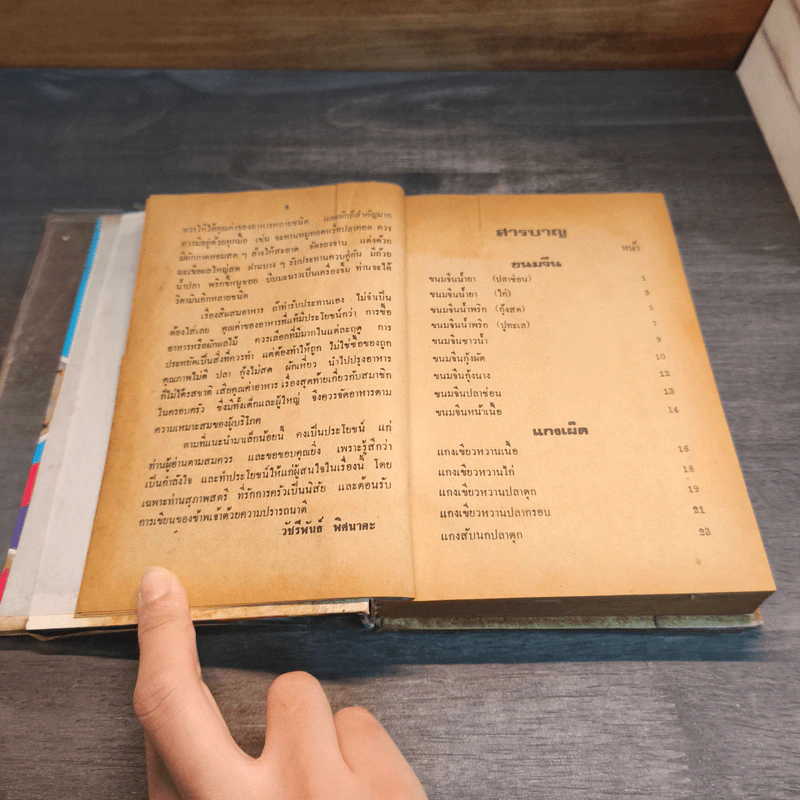 4
ควรให้ได้คุณค่าของอาหารหลายชนิด และผักที่สำคัญมาก
ควรมีอยู่ด้วยทุกมื้อ เช่น จะทานหมูทอดหรือปลาทอด ควร
มีผักกาดหอมสด ๆ ล้างให้สะอาด จัดรองจาน แต่งด้วย
มะเขือผลใหญ่สด ฝานบาง ๆ รับประทานควบคู่กัน มีถ้วย
น้ำปลา พริกขี้หนูซอย บีบมะนาวเป็นเครื่องจิ้ม ท่านจะได้
วิตามินอีกหลายชนิด
เรื่องสีผสมอาหาร ถ้าทำรับประทานเอง ไม่จำเป็น
ต้องใส่เลย คุณค่าของอาหารที่แท้มีประโยชน์กว่า การซื้อ
อาหารหรือผักผลไม้ ควรเลือกที่มีมากในแต่ละฤดู การ
ประหยัดเป็นสิ่งที่ควรทำ แต่ต้องทำให้ถูก ไม่ใช่ซื้อของถูก
คุณภาพไม่ดี ปลา กุ้งไม่สด ผักเหี่ยว นำไปปรุงอาหาร
ก็ไม่ได้รสชาติ เสียคุณค่าอาหาร เรื่องสุดท้ายเกี่ยวกับสมาชิก
ในครอบครัว ซึ่งมีทั้งเด็กและผู้ใหญ่ จึงควรจัดอาหารตาม
ความเหมาะสมของผู้บริโภค
ตามที่แนะนำมาเล็กน้อยนี้ คงเป็นประโยชน์ แก่
ท่านผู้อ่านตามสมควร และขอขอบคุณยิ่ง เพราะรู้สึกว่า
เป็นกำลังใจ และทำประโยชน์ให้แก่ผู้สนใจในเรื่องนี้ โดย
เฉพาะท่านสุภาพสตรี ที่รักการครัวเป็นนิสัย และต้อนรับ
การเขียนของข้าพเจ้าด้วยความปรารถนาดี
วัชรีพันธ์ พิศนาคะ
สารบาญ
หน้า
ขนมจีน
ขนมจีนน้ำยา (ปลาช่อน) 1
ขนมจีนน้ำยา (ไก่) 3
ขนมจีนน้ำพริก (กุ้งสด) 5
ขนมจีนน้ำพริก (ปูทะเล) 7
ขนมจีนซาวน้ำ 9
ขนมจีนกุ้งผัด 10
ขนมจีนกุ้งนาง 12
ขนมจีนปลาช่อน 13
ขนมจีนหน้าเนื้อ 14
แกงเผ็ด
แกงเขียวหวานเนื้อ 16
แกงเขียวหวานไก่ 18
แกงเขียวหวานปลาดุก 19
แกงเขียวหวานปลากรอบ 21
แกงสับนกปลาดุก 23